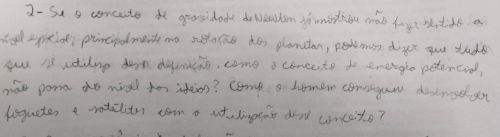 2- Se o conceito de gravidade de Newton já mostrou não fazer sentido a
nível espacial, principalmente na rotação dos planetas, podemos dizer que tudo
que se utiliza dessa definição, como o conceito de energia potencial,
não passa do nível das ideias? Como o homem conseguiu desenvolver
foguetes e satélites com a utilização desse conceito?